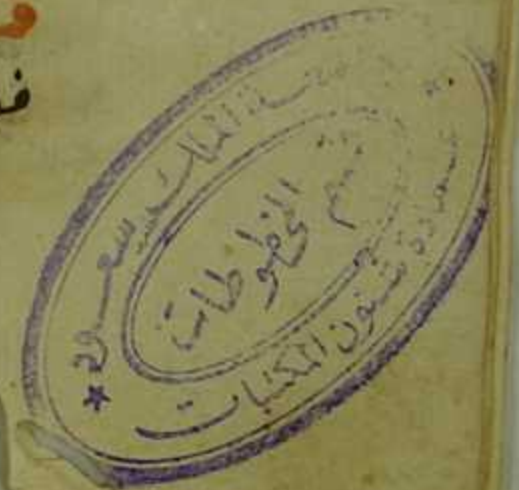 الملك سعود
قسم
المخطوطات
عمادة شئون المكتبات